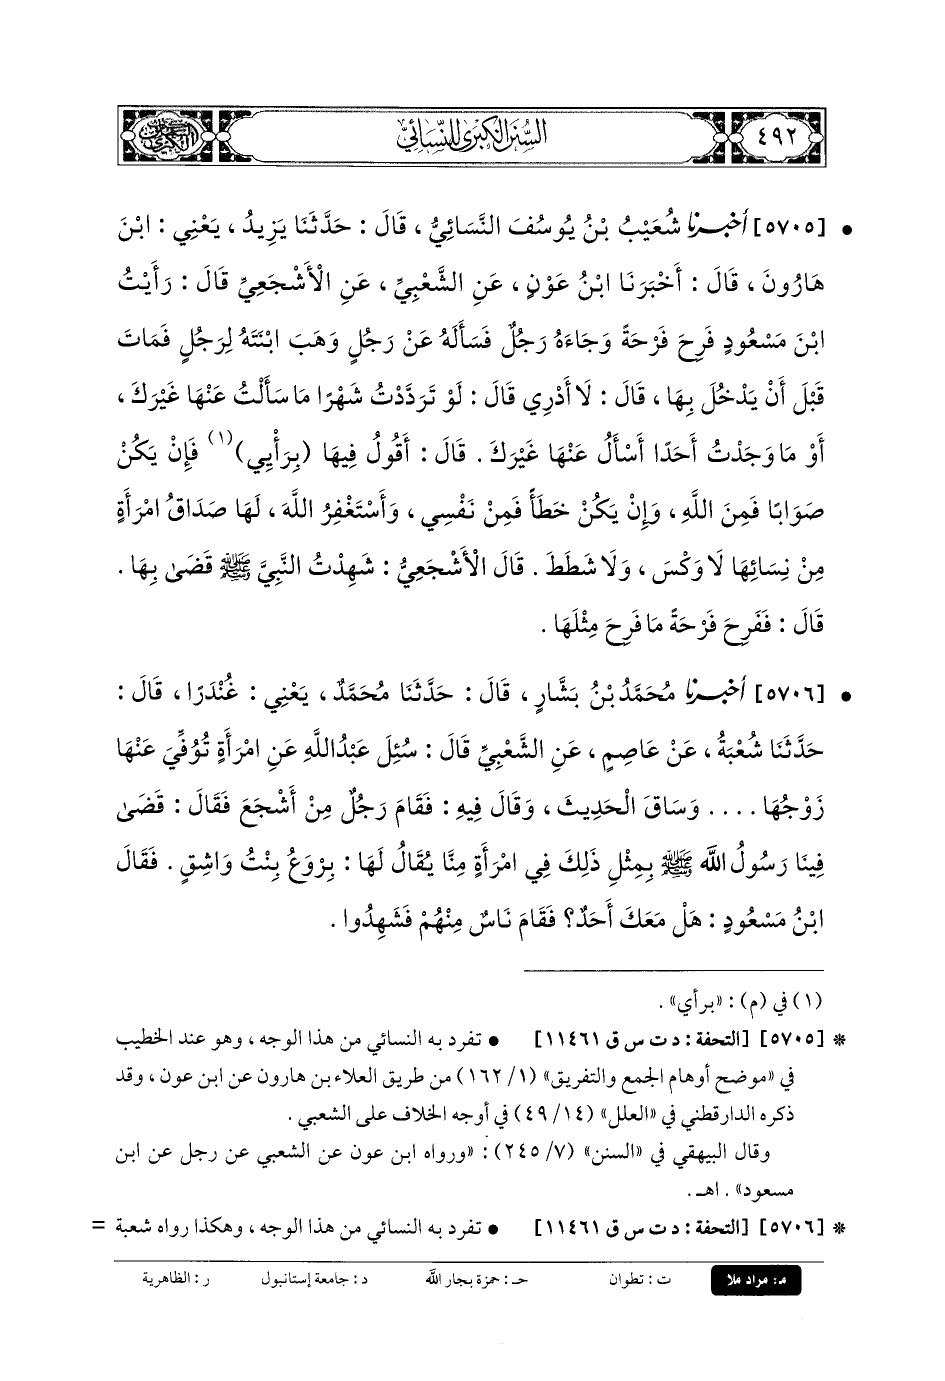 ٤٩٢
السُّنَنُ الكُبرَى لِلنَّسَائِيِّ
• [٥٧٠٥] أخبرنا شُعَيْبُ بْنُ يُوسُفَ النَّسَائِيُّ ، قَالَ : حَدَّثَنَا يَزِيدُ ، يَعْنِي : ابْنَ
هَارُونَ ، قَالَ : أَخْبَرَنَا ابْنُ عَوْنٍ ، عَنِ الشَّعْبِيِّ ، عَنِ الْأَشْجَعِيِّ قَالَ : رَأَيْتُ
ابْنَ مَسْعُودٍ فَرِحَ فَرْحَةً وَجَاءَهُ رَجُلٌ فَسَأَلَهُ عَنْ رَجُلٍ وَهَبَ ابْنَتَهُ لِرَجُلٍ فَمَاتَ
قَبْلَ أَنْ يَدْخُلَ بِهَا ، قَالَ : لَا أَدْرِي قَالَ : لَوْ تَرَدَّدْتُ شَهْرًا مَا سَأَلْتُ عَنْهَا غَيْرَكَ ،
أَوْ مَا وَجَدْتُ أَحَدًا أَسْأَلُ عَنْهَا غَيْرَكَ . قَالَ : أَقُولُ فِيهَا (بِرَأْيِي)(١) فَإِنْ يَكُنْ
صَوَابًا فَمِنَ اللَّهِ ، وَإِنْ يَكُنْ خَطَأً فَمِنْ نَفْسِي ، وَأَسْتَغْفِرُ اللَّهَ ، لَهَا صَدَاقُ امْرَأَةٍ
مِنْ نِسَائِهَا لَا وَكْسَ ، وَلَا شَطَطَ . قَالَ الْأَشْجَعِيُّ : شَهِدْتُ النَّبِيَّ ﷺ قَضَىٰ بِهَا .
قَالَ : فَفَرِحَ فَرْحَةً مَا فَرِحَ مِثْلَهَا .
• [٥٧٠٦] أخبرنا مُحَمَّدُ بْنُ بَشَّارٍ ، قَالَ : حَدَّثَنَا مُحَمَّدٌ ، يَعْنِي : غُنْدَرًا ، قَالَ :
حَدَّثَنَا شُعْبَةُ ، عَنْ عَاصِمٍ ، عَنِ الشَّعْبِيِّ قَالَ : سُئِلَ عَبْدُاللَّهِ عَنِ امْرَأَةٍ تُوُفِّيَ عَنْهَا
زَوْجُهَا .... وَسَاقَ الْحَدِيثَ ، وَقَالَ فِيهِ : فَقَامَ رَجُلٌ مِنْ أَشْجَعَ فَقَالَ : قَضَىٰ
فِينَا رَسُولُ اللَّهِ ﷺ بِمِثْلِ ذَلِكَ فِي امْرَأَةٍ مِنَّا يُقَالُ لَهَا : بِرْوَعُ بِنْتُ وَاشِقٍ . فَقَالَ
ابْنُ مَسْعُودٍ : هَلْ مَعَكَ أَحَدٌ؟ فَقَامَ نَاسٌ مِنْهُمْ فَشَهِدُوا .
(١) في (م) : «برأي» .
* [٥٧٠٥] [التحفة : د ت س ق ١١٤٦١] • تفرد به النسائي من هذا الوجه ، وهو عند الخطيب
في «موضح أوهام الجمع والتفريق» (١/ ١٦٢) من طريق العلاء بن هارون عن ابن عون ، وقد
ذكره الدارقطني في «العلل» (١٤/ ٤٩) في أوجه الخلاف على الشعبي .
وقال البيهقي في «السنن» (٧/ ٢٤٥) : «ورواه ابن عون عن الشعبي عن رجل عن ابن
مسعود» . اهـ .
* [٥٧٠٦] [التحفة : د ت س ق ١١٤٦١] • تفرد به النسائي من هذا الوجه ، وهكذا رواه شعبة =
م: مراد ملا ت : تطوان حـ : حمزة بجار اللَّه د : جامعة إستانبول ر : الظاهرية